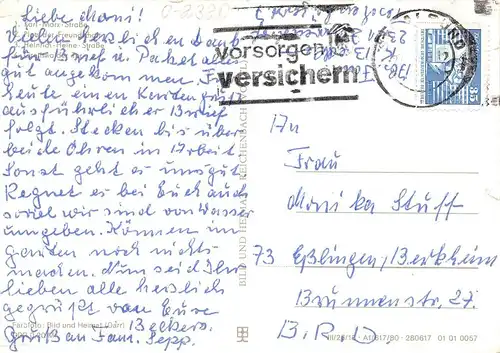 Liebe Moni!
Vielen herzlichen Dank
für Brief u. Paket alles
gut angekommen. Für
heute einen Kartengruß
ausführlicher Brief
folgt. Stecken bis über
beide Ohren in Arbeit
Sonst geht es uns gut
Regnet es bei Euch auch
soviel wir sind von Wasser
umgeben. Können im
Garten noch nichts
machen. Nun seid Ihr
lieben alle herzlich
gegrüßt von Eure
Beckers.
Gruß an Fam. Sepp.
Karl-Marx-Straße
Heinrich-Heine-Straße
Farbfoto: Bild und Heimat (Darr)
BILD UND HEIMAT REICHENBACH
vorsorgen
versichern
85
An
Frau
Monika Stuff
73 Eßlingen, Berkheim
Brunnenstr. 27.
B.R.D
III/26/13 A1/817/80 280617 01 01 0057